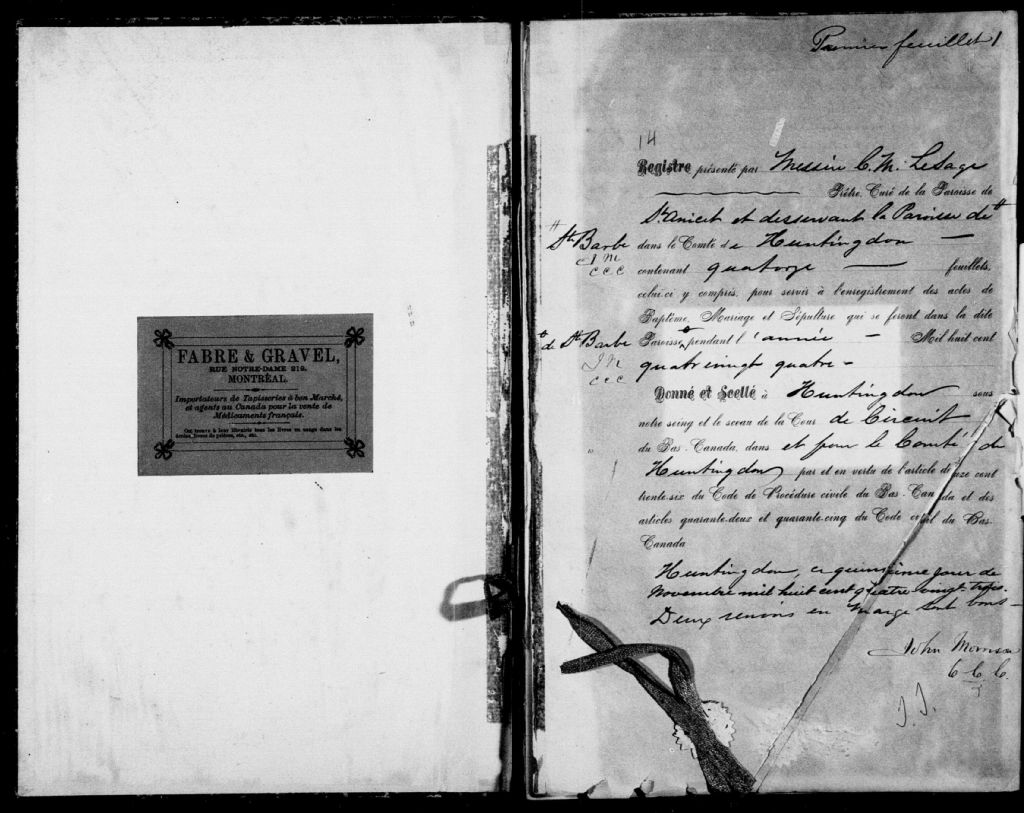 FABRE & GRAVEL,
RUE NOTRE-DAME 219.
MONTRÉAL.
Importateurs de Tapisseries à bon Marché,
et agents au Canada pour la vente de
Médicaments français.
On trouve à leur librairie tous les livres en usage dans les
écoles, livres de prières, etc., etc.
Premier feuillet 1
14
Registre présenté par Messire C. M. LeSage
Prêtre, Curé de la Paroisse de
St. Anicet et desservant la Paroisse de
Ste Barbe dans le Comté de Huntingdon —
J M
C C C
contenant quatorze — feuillets,
celui-ci y compris, pour servir à l'enregistrement des actes de
Baptême, Mariage et Sépulture qui se feront dans la dite
de Ste Barbe Paroisse pendant l'année — Mil huit cent
J M
C C C
quatre vingt quatre —
Donné et Scellé à Huntingdon sous
notre seing et le sceau de la Cour de Circuit
du Bas-Canada, dans et pour le Comté de
Huntingdon par et en vertu de l'article douze cent
trente-six du Code de Procédure civile du Bas-Canada et des
articles quarante-deux et quarante-cinq du Code civil du Bas-
Canada
Huntingdon, ce quinzième jour de
Novembre mil huit cent quatre vingt trois.
Deux renvois en marge sont bons —
John Morrison
C. C. C.
J. J.